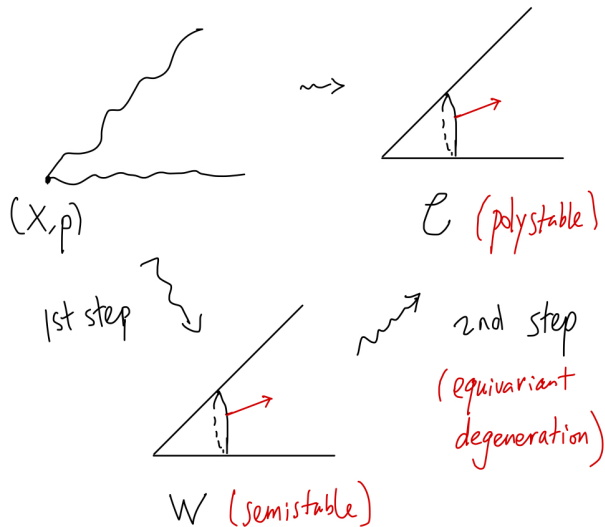 (X,p)
C (polystable)
1st step
2nd step
(equivariant
degeneration)
W (semistable)